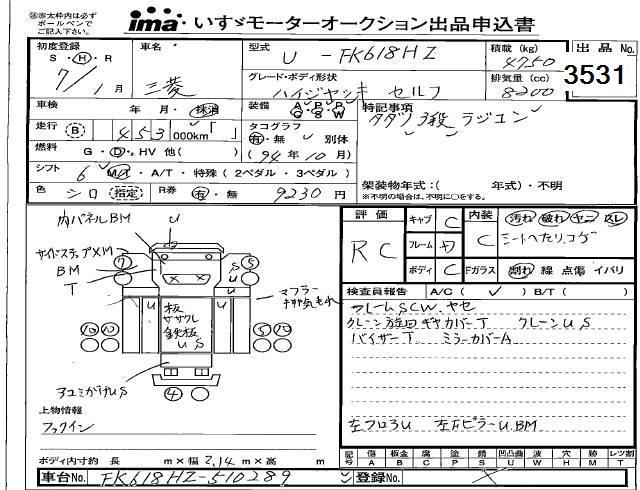 ㊟赤太枠内は必ず
ボールペンで
ご記入下さい。
ima いすゞモーターオークション出品申込書
初度登録 S・H・R 7/1月
車名 三菱
型式 U-FK618HZ
積載(kg) 4750
出品No. 3531
グレード・ボディ形状 ハイジャッキ セルフ
排気量(cc) 8200
車検 年 月・抹消
装備 A P P G S W
特記事項
タダノ3段 ラジコン
走行 B 453 000km「 」
タコグラフ 有・無 別体
燃料 G・D・HV 他( )
(94年10月)
シフト 6 M/T・A/T・特殊(2ペダル・3ペダル)
架装物年式:( 年式)・不明
※不明の場合は、不明に○をする。
色 シロ 指定
R券 有・無 9230円
内パネルBM U
サイドステップXM
BM
T
7 5
U
S
U
U U
板
ササクレ
鉄板
U S
マフラー
排気もれ
10 10 5 10
アユミかけUS
4
上物情報
フックイン
評価 RC
キャブ C
フレーム
ボディ C
内装 C
汚れ 破れ ヤニ スレ
シートへたり、コゲ
Fガラス 割れ 線 点傷 イバリ
検査員報告 A/C( ✓ ) B/T( )
フレームSCW、ヤセ
クレーン旋回ギヤカバーT クレーンUS
バイザーT ミラーカバーA
左フロアU 左FピラーU.BM
ボディ内寸約 長 m×幅 2.14 m×高 m
記号 傷 板金 腐 塗 錆 凹凸曲 波 穴 跡 レツ割
A B C P S U W H M T
車台No. FK618HZ-510289
登録No.